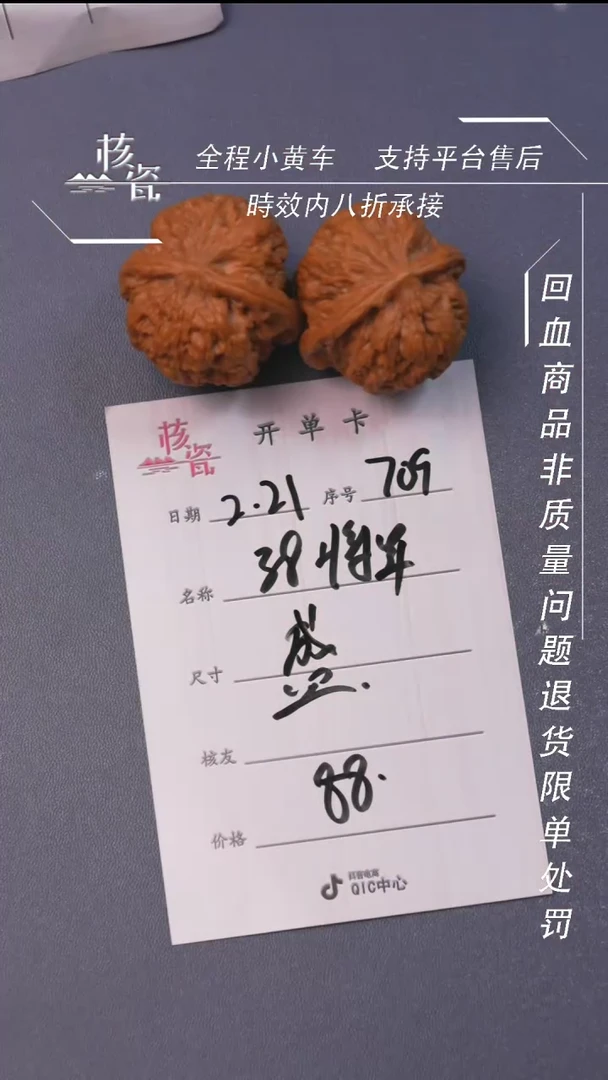 核瓷
全程小黄车 支持平台售后
時效内八折承接
回血商品非质量问题退货限单处罚
核瓷
开单卡
日期 2.21 序号 709
名称 39将军
尺寸 盛
核友
88.
价格
抖音电商
QIC中心